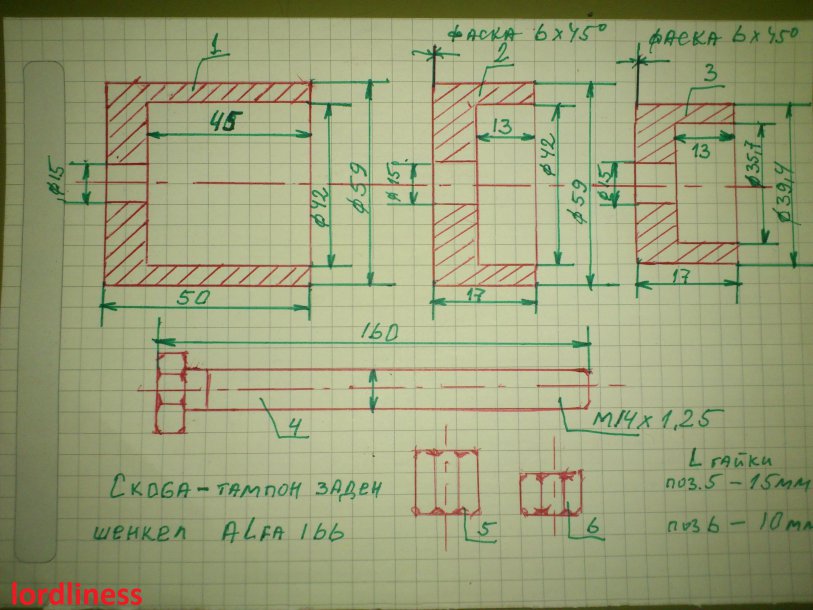 ФАСКА 6x45°
ФАСКА 6x45°
1
2
3
45
13
13
φ15
φ42
φ59
φ15
φ42
φ59
φ15
φ35,7
φ39,4
50
17
17
160
4
M14x1,25
5
6
L гайки
поз.5 - 15мм
поз 6 - 10мм
Скоба - тампон заден
шенкел ALFA 166
lordliness